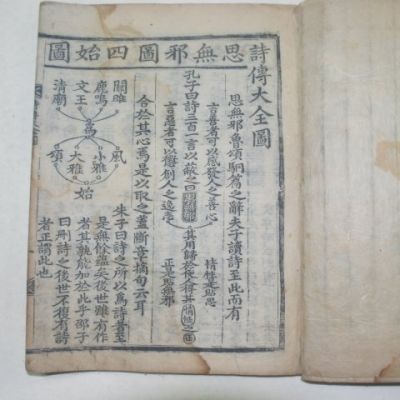 詩傳大全圖
思無邪圖
四始圖
思無邪魯頌駉篇之辭夫子讀詩至此而有
合於其心焉是以取之蓋斷章摘句云耳
孔子曰詩三百一言以蔽之曰思無邪
言善者可以感發人之善心
言惡者可以懲創人之逸志
其用歸於使人得其情性之正
情性是貼思
正是貼無邪
朱子曰詩之所以爲詩者至
是無餘蘊矣後世雖有作
者其孰能加於此乎邵子
曰刪詩之後世不復有詩
者正謂此也
關雎
鹿鳴
文王
淸廟
爲
風
小雅
大雅
頌
始